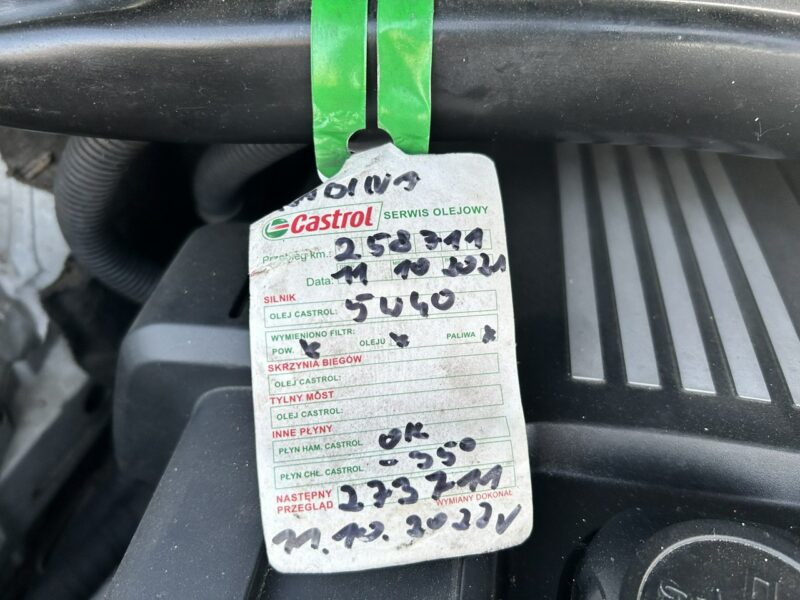 Castrol SERWIS OLEJOWY
Przebieg km.: 258711
Data: 11 10 2021
SILNIK
OLEJ CASTROL: 5W40
WYMIENIONO FILTR:
POW. x OLEJU x PALIWA x
SKRZYNIA BIEGÓW
OLEJ CASTROL:
TYLNY MOST
OLEJ CASTROL:
INNE PŁYNY
PŁYN HAM. CASTROL OK
PŁYN CHŁ. CASTROL -350
NASTĘPNY PRZEGLĄD 273711
WYMIANY DOKONAŁ
11.10.2022